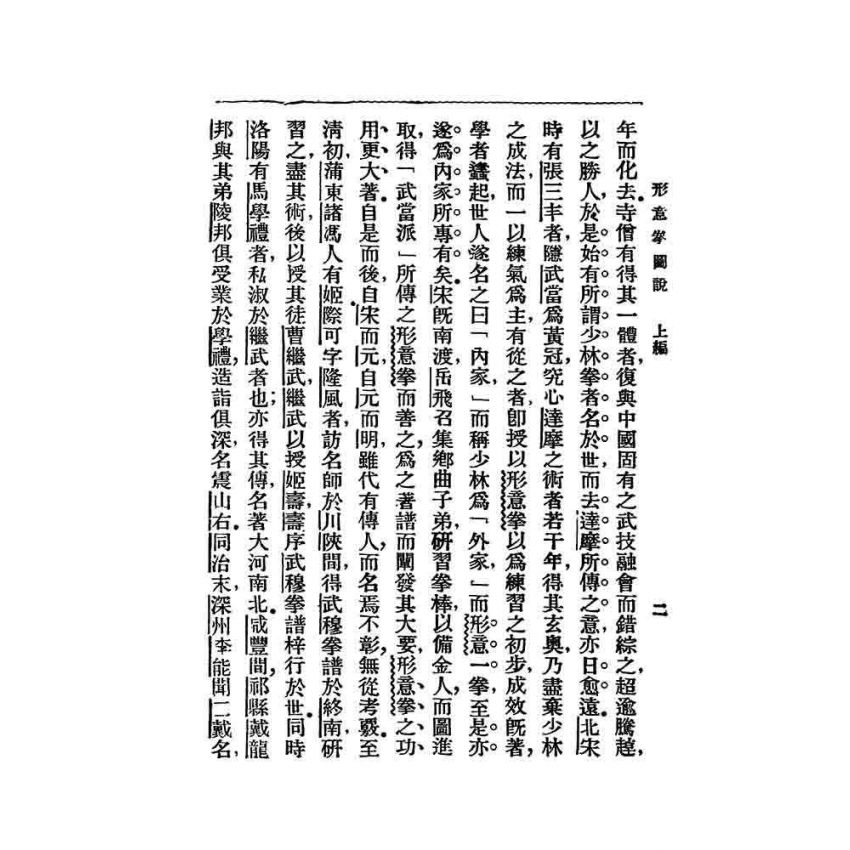 形意拳圖說　上編
二
年而化去。寺僧有得其一體者，復與中國固有之武技融會而錯綜之，超逾騰越，
以之勝人，於是始有所謂少林拳者名於世，而去達摩所傳之意，亦日愈遠。北宋
時有張三丰者，隱武當爲黃冠，究心達摩之術者若干年，得其玄奧，乃盡棄少林
之成法，而一以練氣爲主，有從之者，卽授以形意拳以爲練習之初步，成效旣著，
學者蠭起，世人遂名之曰「內家，」而稱少林爲「外家，」而形意一拳，至是亦
遂爲內家所專有矣。宋旣南渡，岳飛召集鄉曲子弟，研習拳棒，以備金人，而圖進
取，得「武當派」所傳之形意拳而善之，爲之著譜而闡發其大要，形意拳之功
用，更大著。自是而後，自宋而元，自元而明，雖代有傳人，而名焉不彰，無從考覈。至
淸初，蒲東諸馮人有姬際可字隆風者，訪名師於川陝間，得武穆拳譜於終南，研
習之，盡其術，後以授其徒曹繼武，繼武以授姬壽，壽序武穆拳譜梓行於世。同時
洛陽有馬學禮者，私淑於繼武者也；亦得其傳，名著大河南北。咸豐間，祁縣戴龍
邦與其弟陵邦俱受業於學禮，造詣俱深，名震山右。同治末，深州李能聞二戴名，